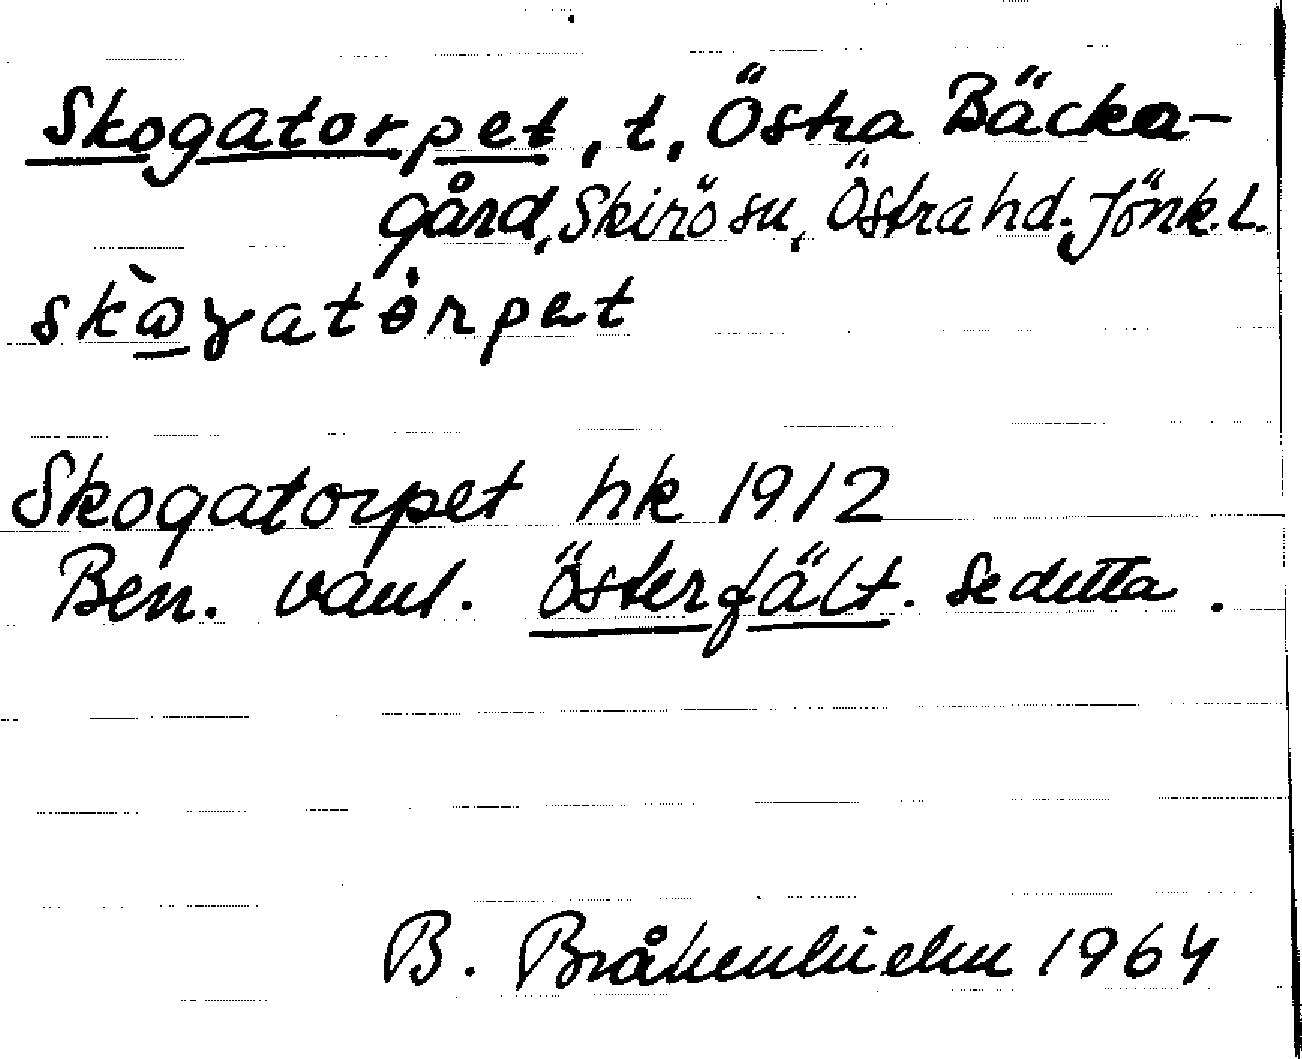 Skogatorpet, t, Östra Bäcka-
gård, Skirö sn, Östra hd. Jönk. L.
skò̲gatȯrpet
Skogatorpet hk 1912
Ben. vanl. Österfält. Se detta.
B. 1964